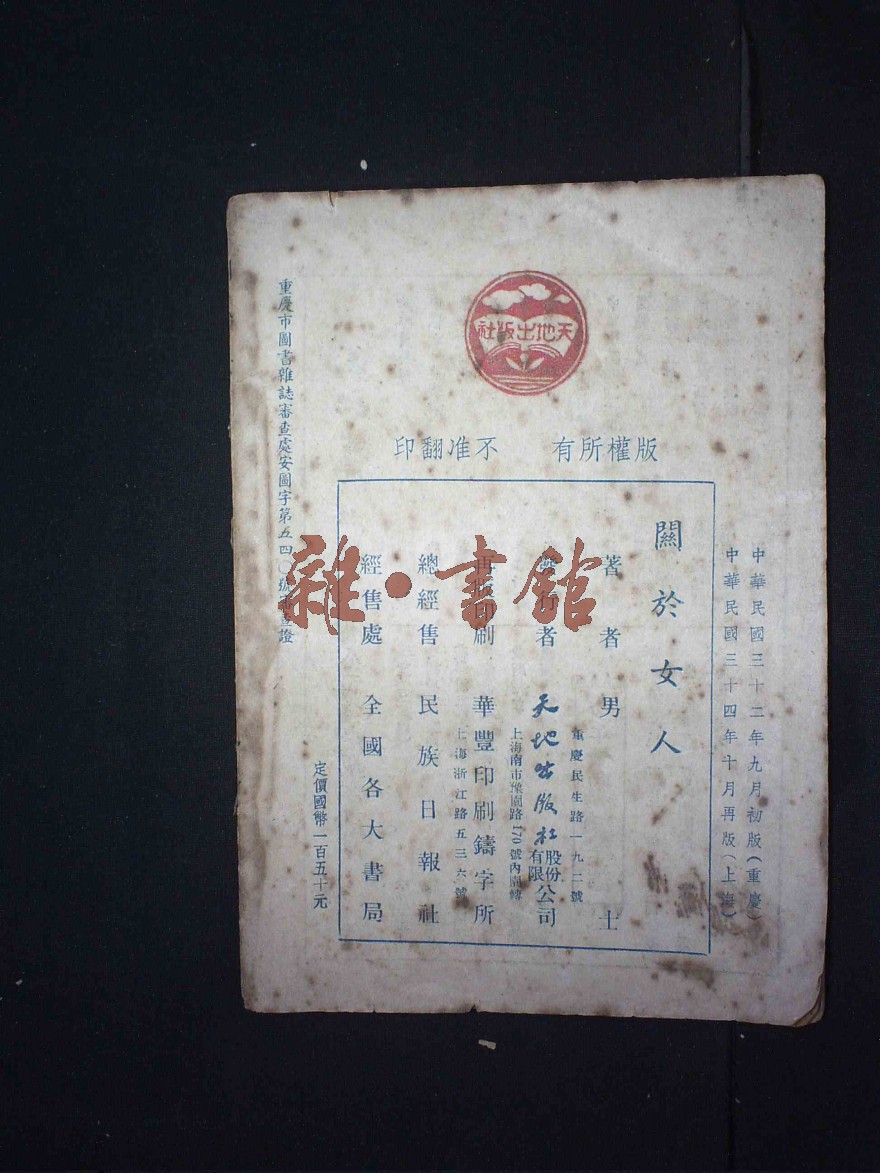 天地出版社
版權所有 不准翻印
中華民國三十二年九月初版(重慶)
中華民國三十四年十月再版(上海)
關於女人
著者 男士
重慶民生路一九二號
發行者 天地出版社股份有限公司
上海南市 路170號內
再版印刷 華豐印刷鑄字所
上海浙江路五三六號
總經售 民族日報社
經售處 全國各大書局
重慶市圖書雜誌審查處安圖字第五四〇號審查證
定價國幣一百五十元
雜·書館